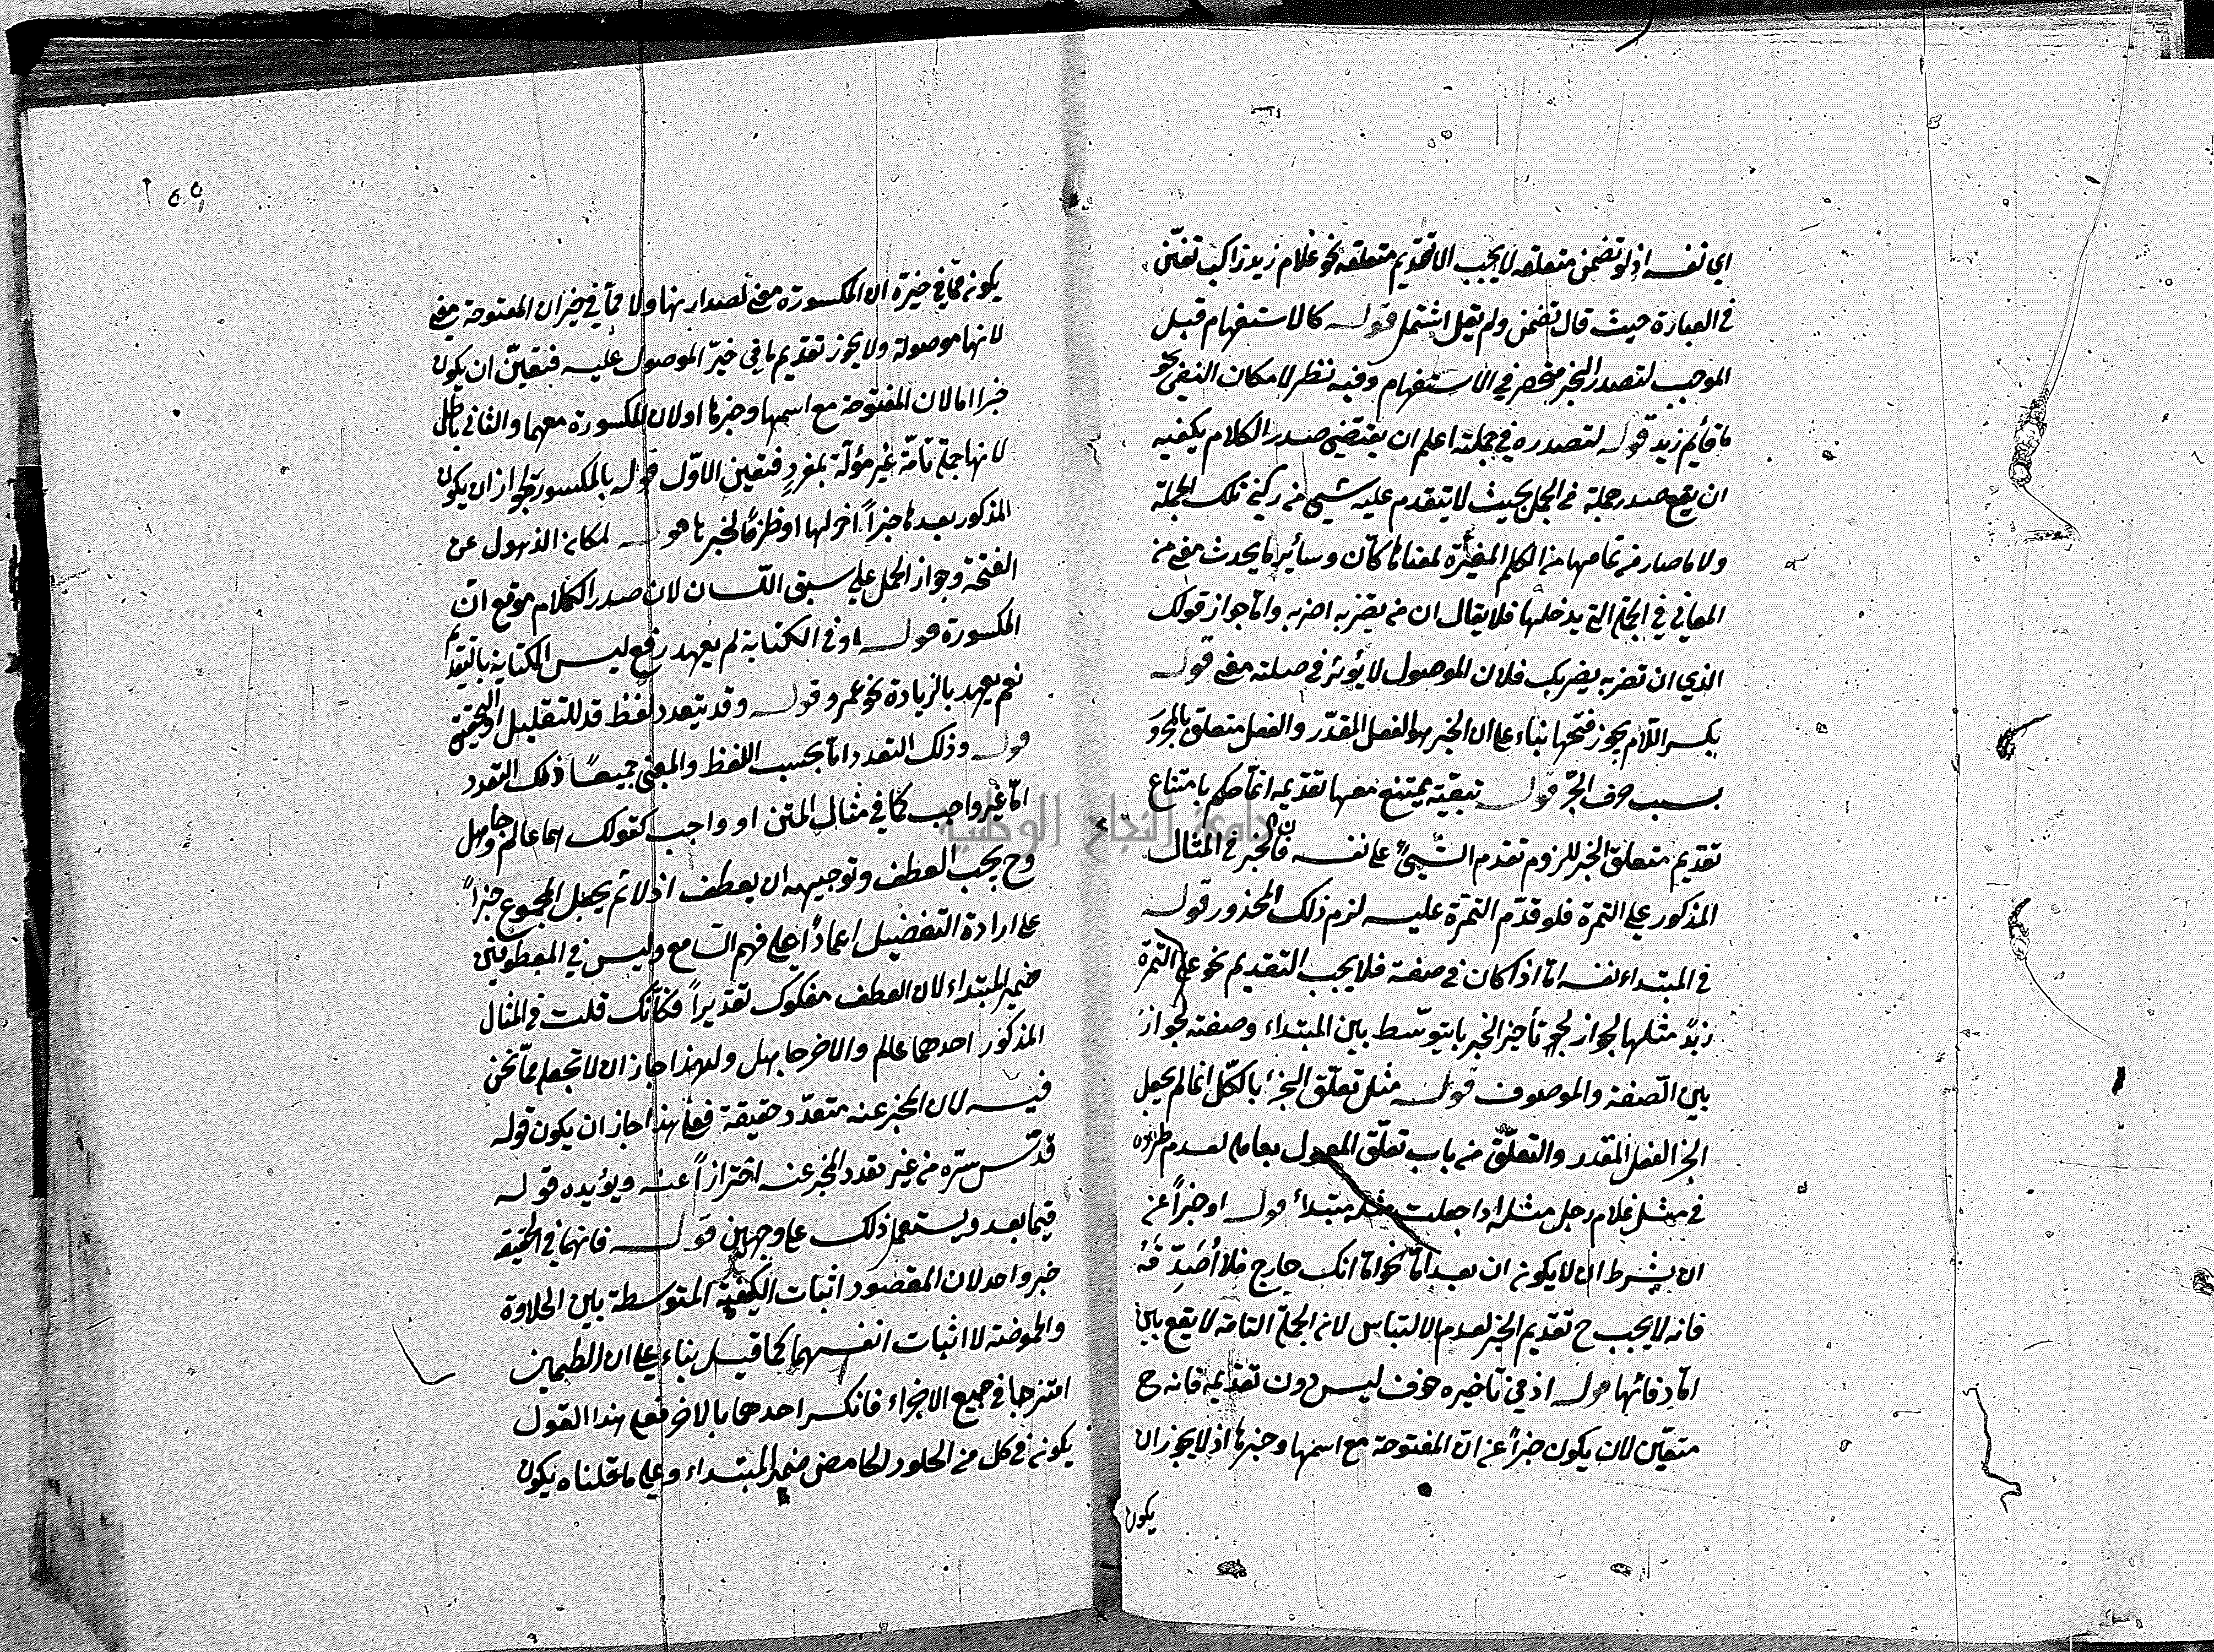 اي نفسه اذ لو تضمن متعلقه لا يجب الا تقديم متعلقه نحو غلام زيد راكب تفنن
في العبارة حيث قال تضمن ولم يقل اشتمل قوله كالاستفهام قيل
الموجب لتصدر الخبر منحصر في الاستفهام وفيه نظر لامكان النفي نحو
ما قائم زيد قوله لتصدره في جملته اعلم ان يقتضي صدر الكلام يكفيه
ان يقع صدر جملة من الجمل بحيث لا يتقدم عليه شيئ من ركني تلك الجملة
ولا ما صار من تمامها من الكلم المغيرة لمعناها كان وسائر ما يحدث معنى من
المعاني في الجملة التي يدخلها فلا يقال ان من يضربه اضربه واما جواز قولك
الذي ان تضربه يضربك فلان الموصول لا يؤثر في صلته معنى قوله
بكسر اللام يجوز فتحها بناء على ان الخبر هو الفعل المقدر والفعل متعلق بالمجرور
بسبب حرف الجر قوله تبعية يمتنع معها تقديمه انما حكم بامتناع
تقديم متعلق الخبر للزوم تقدم الشيئ على نفسه فان الخبر في المثال
المذكور على التمرة فلو قدم التمرة عليه لزم ذلك المحذور قوله
في المبتداء نفسه اما اذا كان في صفته فلا يجب التقديم نحو على التمرة
زبد مثلها لجواز تأخير الخبر بان يتوسط بين المبتداء وصفته لجوازه
بين الصفة والموصوف قوله مثل تعلق الجزء بالكل انما لم يجعل
الخبر الفعل المقدر والتعلق من باب تعلق المعمول بعامله لعدم طرده
في مثل غلام رجل مثله اذا جعلت مثله مبتداء قوله او خبرا عن
ان بشرط ان لا يكون ان بعد اما نحو اما انك خارج فلا اصدقه
فانه لا يجب ح تقديم الخبر لعدم الالتباس لان الجملة التامة لا يقع بين
اما وفائها قوله اذ في تاخيره خوف ليس دون تقديمه فانه ح
متعين لان يكون خبرا عن ان المفتوحة مع اسمها وخبرها اذ لا يجوز ان
يكون
١٥٩
يكون مما في خبر ان المكسورة معنى لصدارتها ولا مما في خبر ان المفتوحة معنى
لانها موصولة ولا يجوز تقديم ما في خبر الموصول عليه فتعين ان يكون
خبرا اما لان المفتوحة مع اسمها وخبرها او لان المكسورة معهما والثاني باطل
لانها جملة تامة غير مؤلة بمفرد فتعين الاول قوله بالمكسورة لجواز ان يكون
المذكور بعدها خبرا اخر لها او ظرفا لخبرها قوله لمكان الذهول عن
الفتحة وجواز الحمل على سبق اللسان لان صدر الكلام موقع ان
المكسورة قوله او في الكتابة لم يعهد رفع لبس الكتابة بالتقديم
نعم يعهد بالزيادة نحو عمرو قوله وقد يتعدد لفظ قد للتقليل او التحقيق
قوله وذلك التعدد اما بحسب اللفظ والمعنى جميعا ذلك التعدد
اما غير واجب كما في مثال المتن او واجب كقولك هما عالم وجاهل
وح يجب العطف وتوجيهه ان يعطف اولا ثم يجعل المجموع خبرا
على ارادة التفضيل اعمادا على فهم السامع وليس في المعطوفين
ضمير المبتداء لان العطف مفكوك تقديرا فكأنك قلت في المثال
المذكور احدهما عالم والاخر جاهل ولهذا جاز ان لا تجعله مما نحن
فيه لان المخبر عنه متعدد حقيقة فعلى هذا جاز ان يكون قوله
قدس سره من غير تعدد المخبر عنه احترازا عنه ويؤيده قوله
فيما بعد ويستعمل ذلك على وجهين قوله فانهما في الحقيقة
خبر واحد لان المقصود اثبات الكيفية المتوسطة بين الحلاوة
والحموضة لا اثبات انفسهما كما قيل بناء على ان الطعمين
امتزجا في جميع الاجزاء فانكسر احدهما بالاخر فعلى هذا القول
يكون في كل من الحلو والحامض ضمير المبتداء وعلى ما قلناه يكون